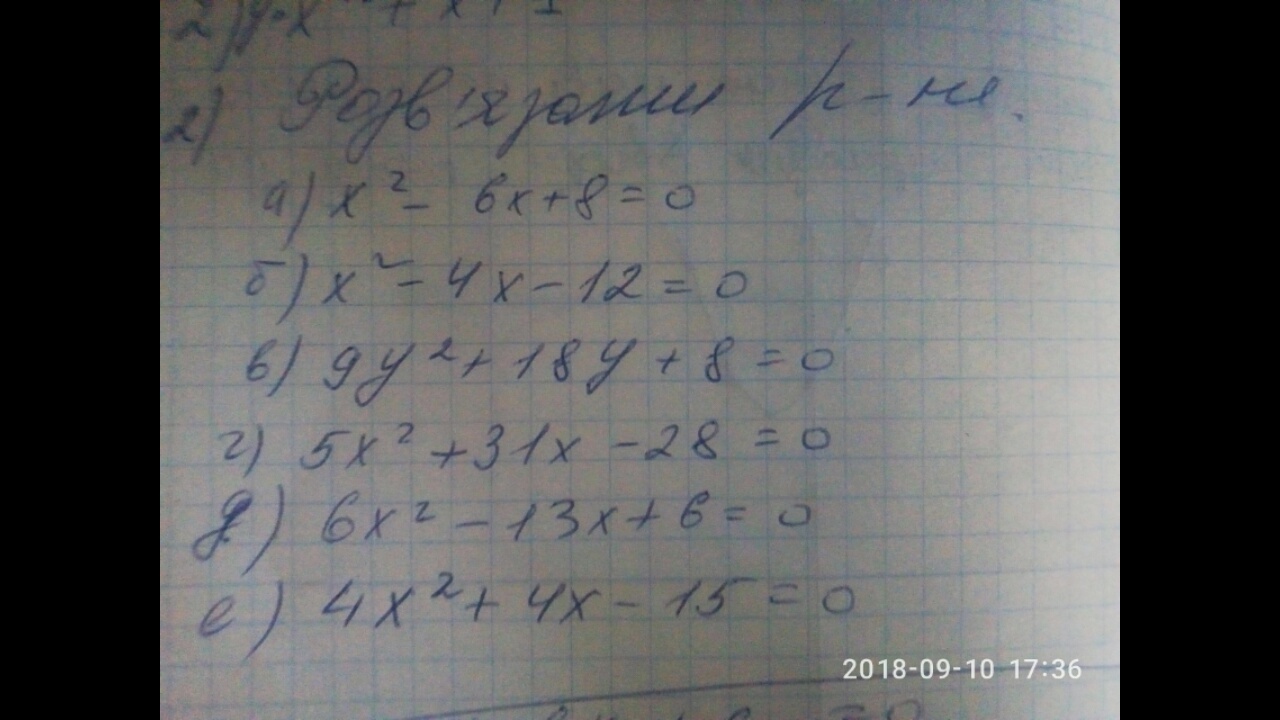 2) y=x² + x + 1
2) Розв'язати р-не.
а) x² - 6x+8=0
б) x² - 4x - 12 = 0
в) 9y² + 18y + 8 = 0
г) 5x² + 31x - 28 = 0
д) 6x² - 13x + 6 = 0
е) 4x² + 4x - 15 = 0
2018-09-10 17:36
= 0